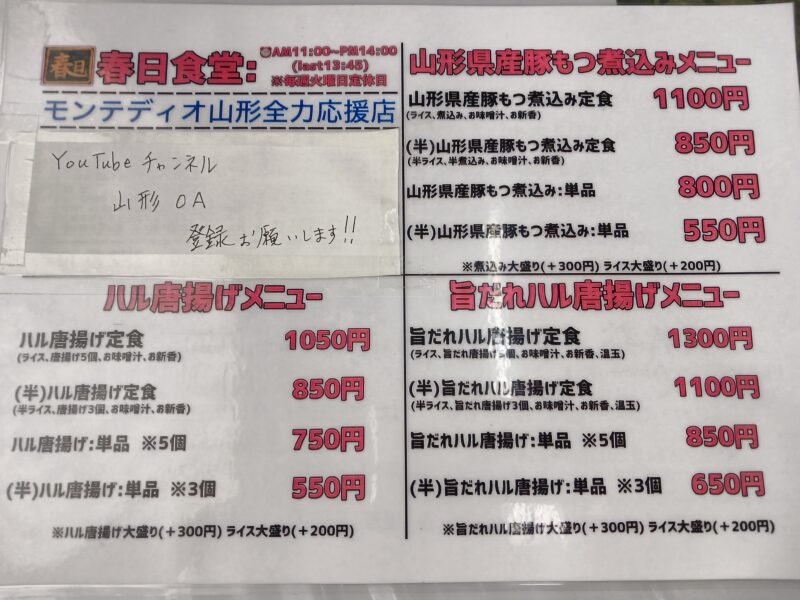 春日
春日食堂:
AM11:00~PM14:00
(last13:45)
※毎週火曜日定休日
モンテディオ山形全力応援店
YouTubeチャンネル
山形OA
登録お願いします!!
山形県産豚もつ煮込みメニュー
山形県産豚もつ煮込み定食 1100円
(ライス、煮込み、お味噌汁、お新香)
(半)山形県産豚もつ煮込み定食 850円
(半ライス、半煮込み、お味噌汁、お新香)
山形県産豚もつ煮込み:単品 800円
(半)山形県産豚もつ煮込み:単品 550円
※煮込み大盛り(+300円) ライス大盛り(+200円)
ハル唐揚げメニュー
ハル唐揚げ定食 1050円
(ライス、唐揚げ5個、お味噌汁、お新香)
(半)ハル唐揚げ定食 850円
(半ライス、唐揚げ3個、お味噌汁、お新香)
ハル唐揚げ:単品 ※5個 750円
(半)ハル唐揚げ:単品 ※3個 550円
※ハル唐揚げ大盛り(+300円) ライス大盛り(+200円)
旨だれハル唐揚げメニュー
旨だれハル唐揚げ定食 1300円
(ライス、旨だれ唐揚げ5個、お味噌汁、お新香、温玉)
(半)旨だれハル唐揚げ定食 1100円
(半ライス、旨だれ唐揚げ3個、お味噌汁、お新香、温玉)
旨だれハル唐揚げ:単品 ※5個 850円
(半)旨だれハル唐揚げ:単品 ※3個 650円
※旨だれハル唐揚げ大盛り(+300円) ライス大盛り(+200円)